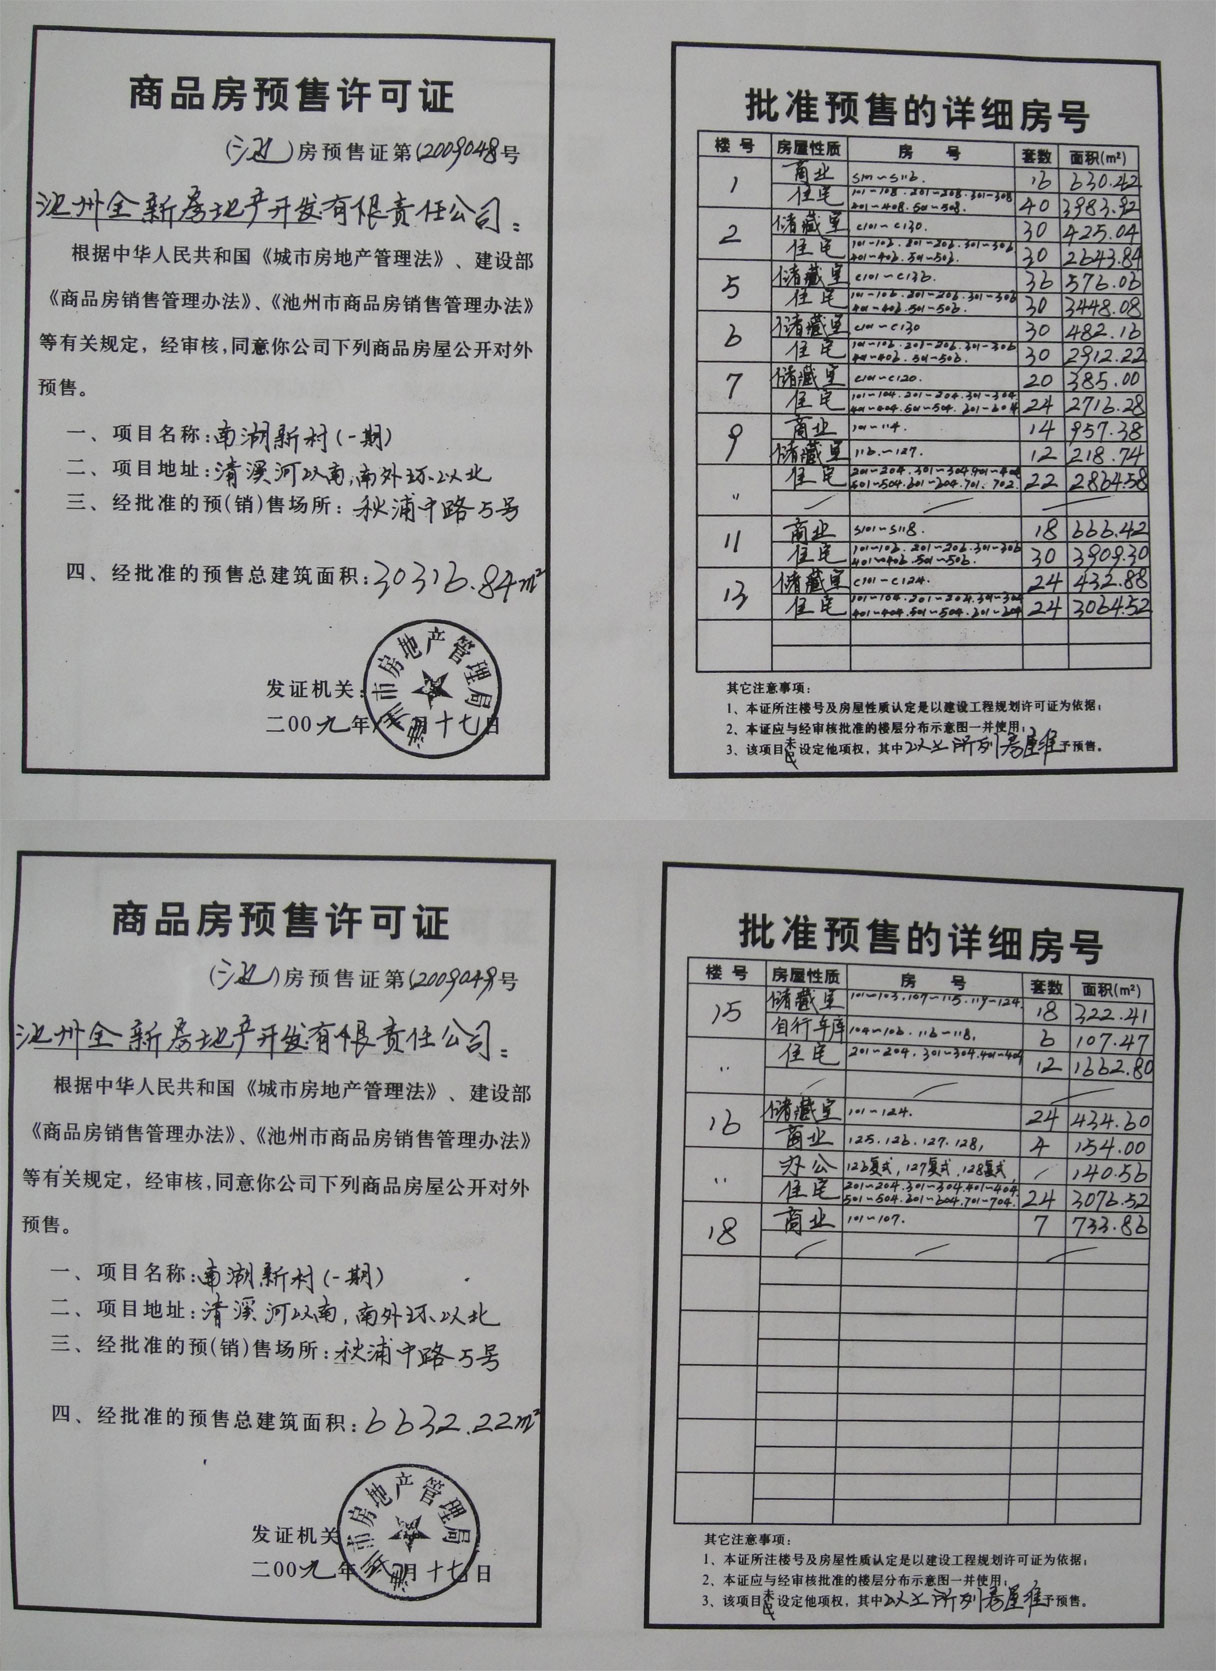 商品房预售许可证
(池)房预售证第(2009048号
池州全新房地产开发有限责任公司:
根据中华人民共和国《城市房地产管理法》、建设部
《商品房销售管理办法》、《池州市商品房销售管理办法》
等有关规定，经审核,同意你公司下列商品房屋公开对外
预售。
一、项目名称:南湖新村(一期)
二、项目地址:清溪河以南,南外环以北
三、经批准的预(销)售场所:秋浦中路5号
四、经批准的预售总建筑面积:30316.84m²
发证机关:
池州市房地产管理局
二00九年 月十七日
批准预售的详细房号
楼号 房屋性质 房号 套数 面积(m²)
1 商业 S101~S116. 16 630.42
住宅 101~108.201~208.301~308 401~408.501~508. 40 3983.92
2 储藏室 C101~C130. 30 425.04
住宅 101~106.201~206.301~306 401~406.501~506. 30 2643.84
5 储藏室 C101~C136. 36 576.06
住宅 101~106.201~206.301~306 401~406.501~506. 30 3448.08
6 储藏室 C101~C130 30 482.16
住宅 101~106.201~206.301~306 401~406.501~506. 30 2912.22
7 储藏室 C101~C120. 20 385.00
住宅 101~104.201~204.301~304. 401~404.501~504.601~604 24 2716.28
9 商业 101~114. 14 957.38
储藏室 116.~127. 12 218.74
〃 住宅 201~204.301~304.401~404 501~504.601~604.701.702. 22 2864.58
11 商业 S101~S118. 18 666.42
住宅 101~106.201~206.301~306 401~406.501~506. 30 3909.30
13 储藏室 C101~C124. 24 432.88
住宅 101~104.201~204.301~304 401~404.501~504.601~604 24 3064.52
其它注意事项:
1、本证所注楼号及房屋性质认定是以建设工程规划许可证为依据;
2、本证应与经审核批准的楼层分布示意图一并使用;
3、该项目未设定他项权，其中以上所列房屋准予预售。
商品房预售许可证
(池)房预售证第(2009049号
池州全新房地产开发有限责任公司:
根据中华人民共和国《城市房地产管理法》、建设部
《商品房销售管理办法》、《池州市商品房销售管理办法》
等有关规定，经审核,同意你公司下列商品房屋公开对外
预售。
一、项目名称:南湖新村(一期)
二、项目地址:清溪河以南,南外环以北
三、经批准的预(销)售场所:秋浦中路5号
四、经批准的预售总建筑面积:6632.22m²
发证机关
池州市房地产管理局
二00九年 月十七日
批准预售的详细房号
楼号 房屋性质 房号 套数 面积(m²)
15 储藏室 101~103.107~115.119~124 18 322.41
自行车库 104~106.116~118, 6 107.47
〃 住宅 201~204.301~304.401~404 12 1662.80
16 储藏室 101~124. 24 434.60
商业 125.126.127.128, 4 154.00
〃 办公 126复式,127复式,128复式 / 140.56
住宅 201~204.301~304.401~404. 501~504.601~604.701~704. 24 3076.52
18 商业 101~107. 7 733.86
其它注意事项:
1、本证所注楼号及房屋性质认定是以建设工程规划许可证为依据;
2、本证应与经审核批准的楼层分布示意图一并使用;
3、该项目未设定他项权，其中以上所列房屋准予预售。